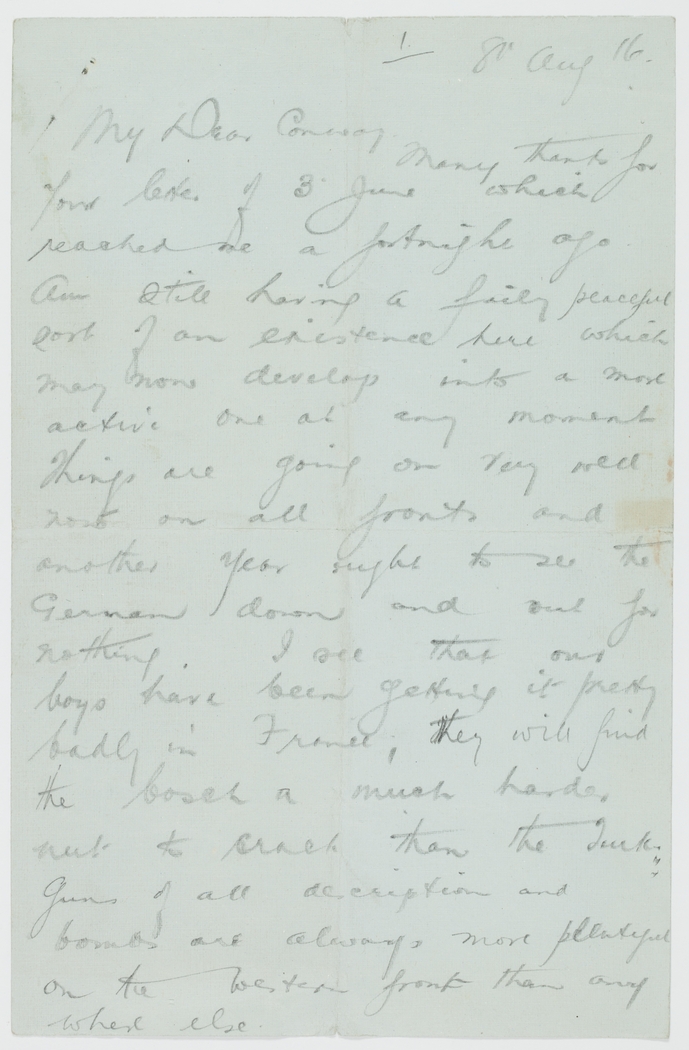 1
8th Aug 16.
My Dear Conway
Many thanks for
Your letter of 3 June which
reached me a fortnight ago
Am still having a fairly peaceful
sort of an existence here which
may now develop into a more
active one at any moment
Things are going on very well
now on all fronts and
another year ought to see the
German down and out for
nothing. I see that our
boys have been getting it pretty
badly in France, they will find
the bosch a much harder
nut to crack than the Turk.
Guns of all description and
bombs are always more plentiful
on the Western front than any
where else.